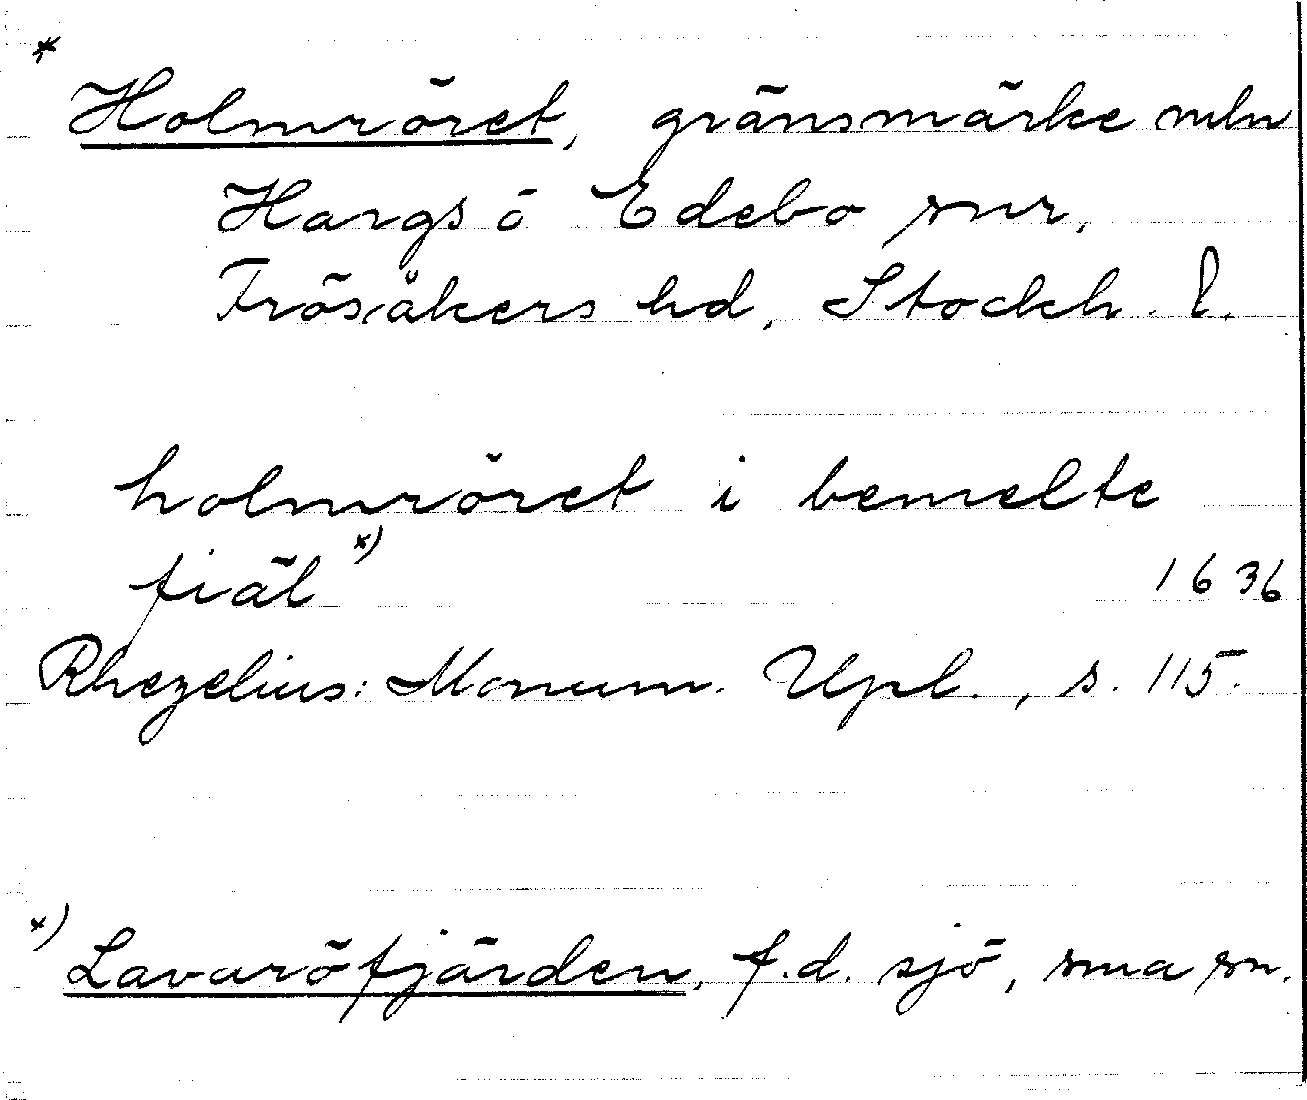 *
Holmröret, gränsmärke mln
Hargs o Edebo snr,
Frösåkers hd, Stockh. l.
holmröret i bemelte
fiäl x) 1636
Rhezelius: Monum. Upl., s. 115.
x) Lavaröfjärden, f.d. sjö, sma sn.